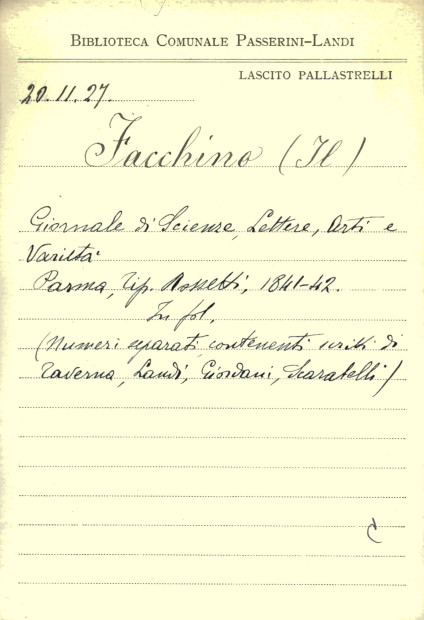 BIBLIOTECA COMUNALE PASSERINI-LANDI
LASCITO PALLASTRELLI
20.11.27.
Facchino (Il)
Giornale di Scienze, Lettere, Arti e
Varietà
Parma, Tip. Rossetti, 1841-42.
In fol.
(Numeri separati contenenti scritti di
Taverna, Landi, Giordani, Scarabelli)